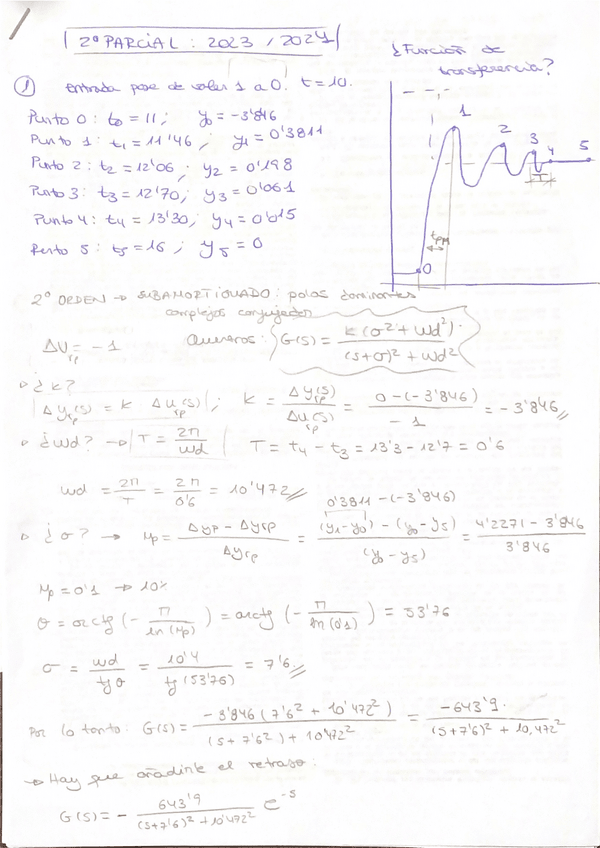 2º PARCIAL : 2023 / 2024
¿Función de transferencia?
① entrada pasa de valer 1 a 0. t = 10.
Punto 0 : t₀ = 11 ; y₀ = -3'846
Punto 1 : t₁ = 11'46 ; y₁ = 0'3811
Punto 2 : t₂ = 12'06 ; y₂ = 0'198
Punto 3 : t₃ = 12'70 ; y₃ = 0'061
Punto 4 : t₄ = 13'30 ; y₄ = 0'015
Punto 5 : t₅ = 16 ; y₅ = 0
1
2
3
4
5
T
tpM
0
2º ORDEN → SUBAMORTIGUADO : polos dominantes
complejos conjugados
ΔUrp = -1
Queremos: G(s) = k(σ² + wd²) / (s+σ)² + wd²
▹ ¿k?
Δyrp(s) = k Δurp(s) ; k = Δyrp(s) / Δurp(s) = 0 - (-3'846) / -1 = -3'846
▹ ¿wd? → T = 2π / wd T = t₄ - t₃ = 13'3 - 12'7 = 0'6
wd = 2π / T = 2π / 0'6 = 10'472
0'3811 - (-3'846)
▹ ¿σ? → Mp = Δyp - Δyrp / Δyrp = (y₁-y₀) - (y₀-y₅) / (y₀-y₅) = 4'2271 - 3'846 / 3'846
Mp = 0'1 → 10%
θ = arctg (- π / ln(Mp)) = arctg (- π / ln(0'1)) = 53'76
σ = wd / tg θ = 10'4 / tg(53'76) = 7'6
Por lo tanto: G(s) = -3'846 (7'6² + 10'472²) / (s + 7'6²) + 10'472² = -643'9 · / (s+7'6)² + 10,472²
→ Hay que añadirle el retraso :
G(s) = - 643'9 / (s+7'6)² + 10'472² e⁻ˢ